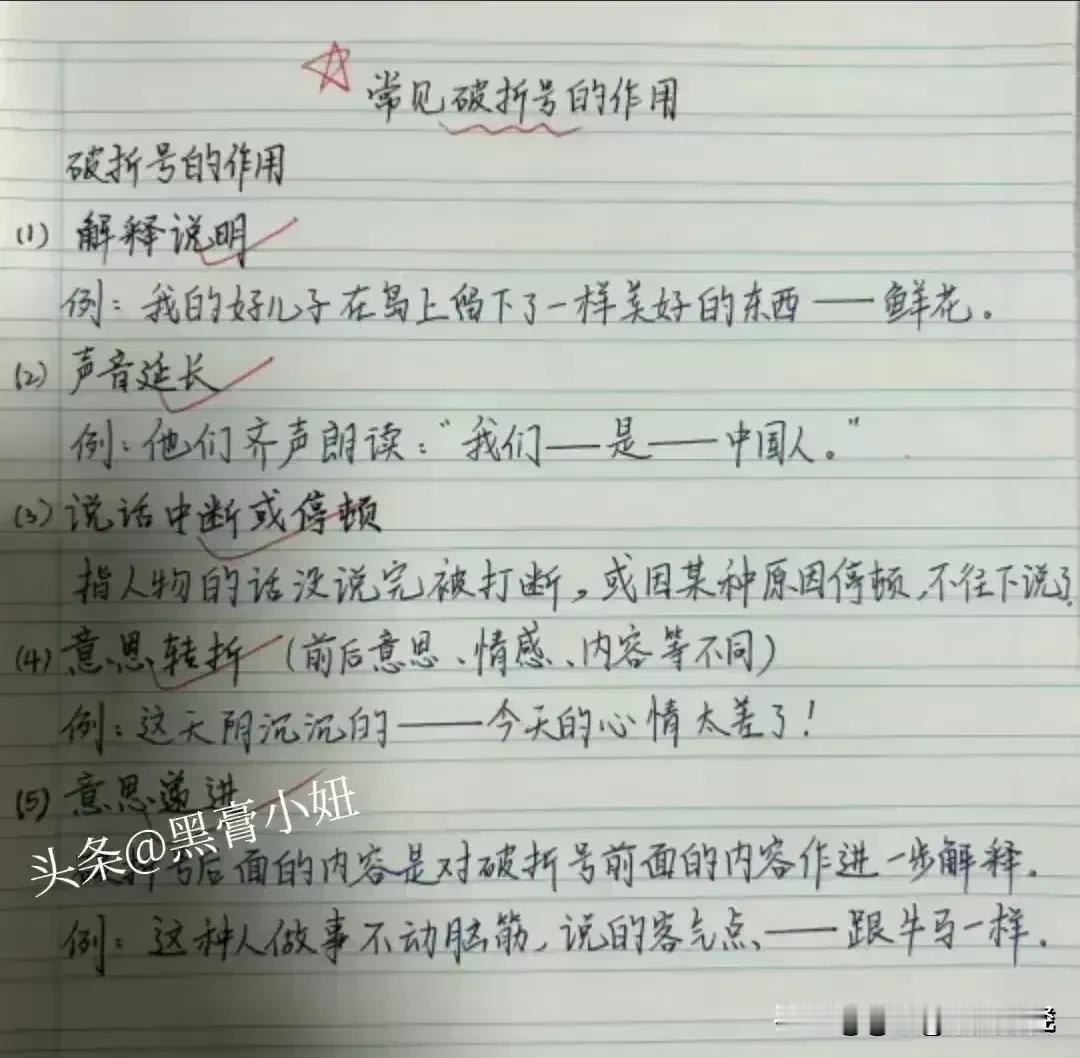 常见破折号的作用
破折号的作用
(1) 解释说明
例：我的好儿子在岛上留下了一样美好的东西——鲜花。
(2) 声音延长
例：他们齐声朗读：“我们——是——中国人。”
(3) 说话中断或停顿
指人物的话没说完被打断。或因某种原因停顿，不往下说了。
(4) 意思转折（前后意思、情感、内容等不同）
例：这天阴沉沉的——今天的心情太差了！
(5) 意思递进
头条@黑膏小妞
号后面的内容是对破折号前面的内容作进一步解释。
例：这种人做事不动脑筋，说的客气点、——跟牛马一样。